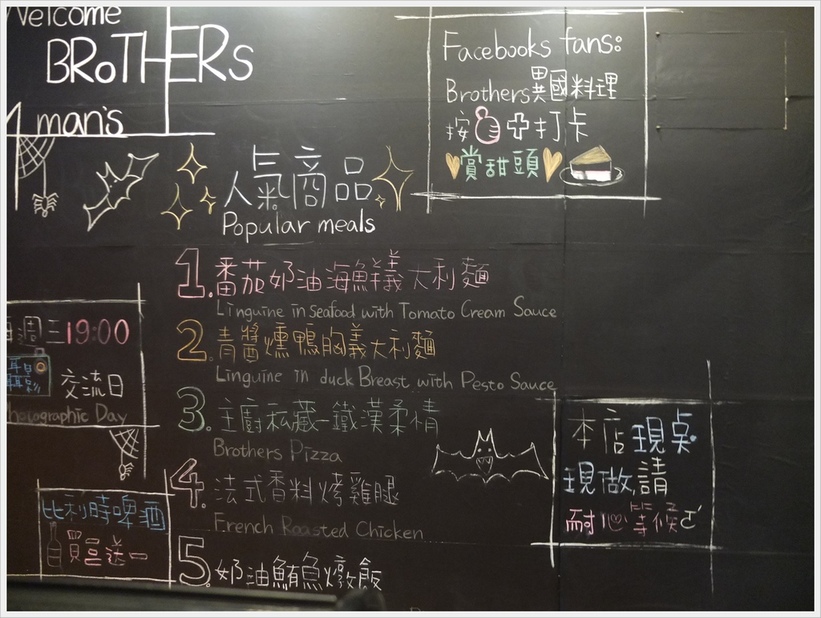 Welcome
BRoTHERs
man's
Facebooks fans:
Brothers異國料理
按 打卡
賞甜頭
人氣商品
Popular meals
1.番茄奶油海鮮義大利麵
Linguine in seafood with Tomato Cream Sauce
2.青醬燻鴨胸義大利麵
Linguine in duck Breast with Pesto Sauce
3.主廚私藏-鐵漢柔情
Brothers Pizza
4.法式香料烤雞腿
French Roasted Chicken
5.奶油鮪魚燉飯
每週三19:00
攝影
交流日
Photographic Day
比利時啤酒
買三送一
本店現桌
現做,請
耐心等候